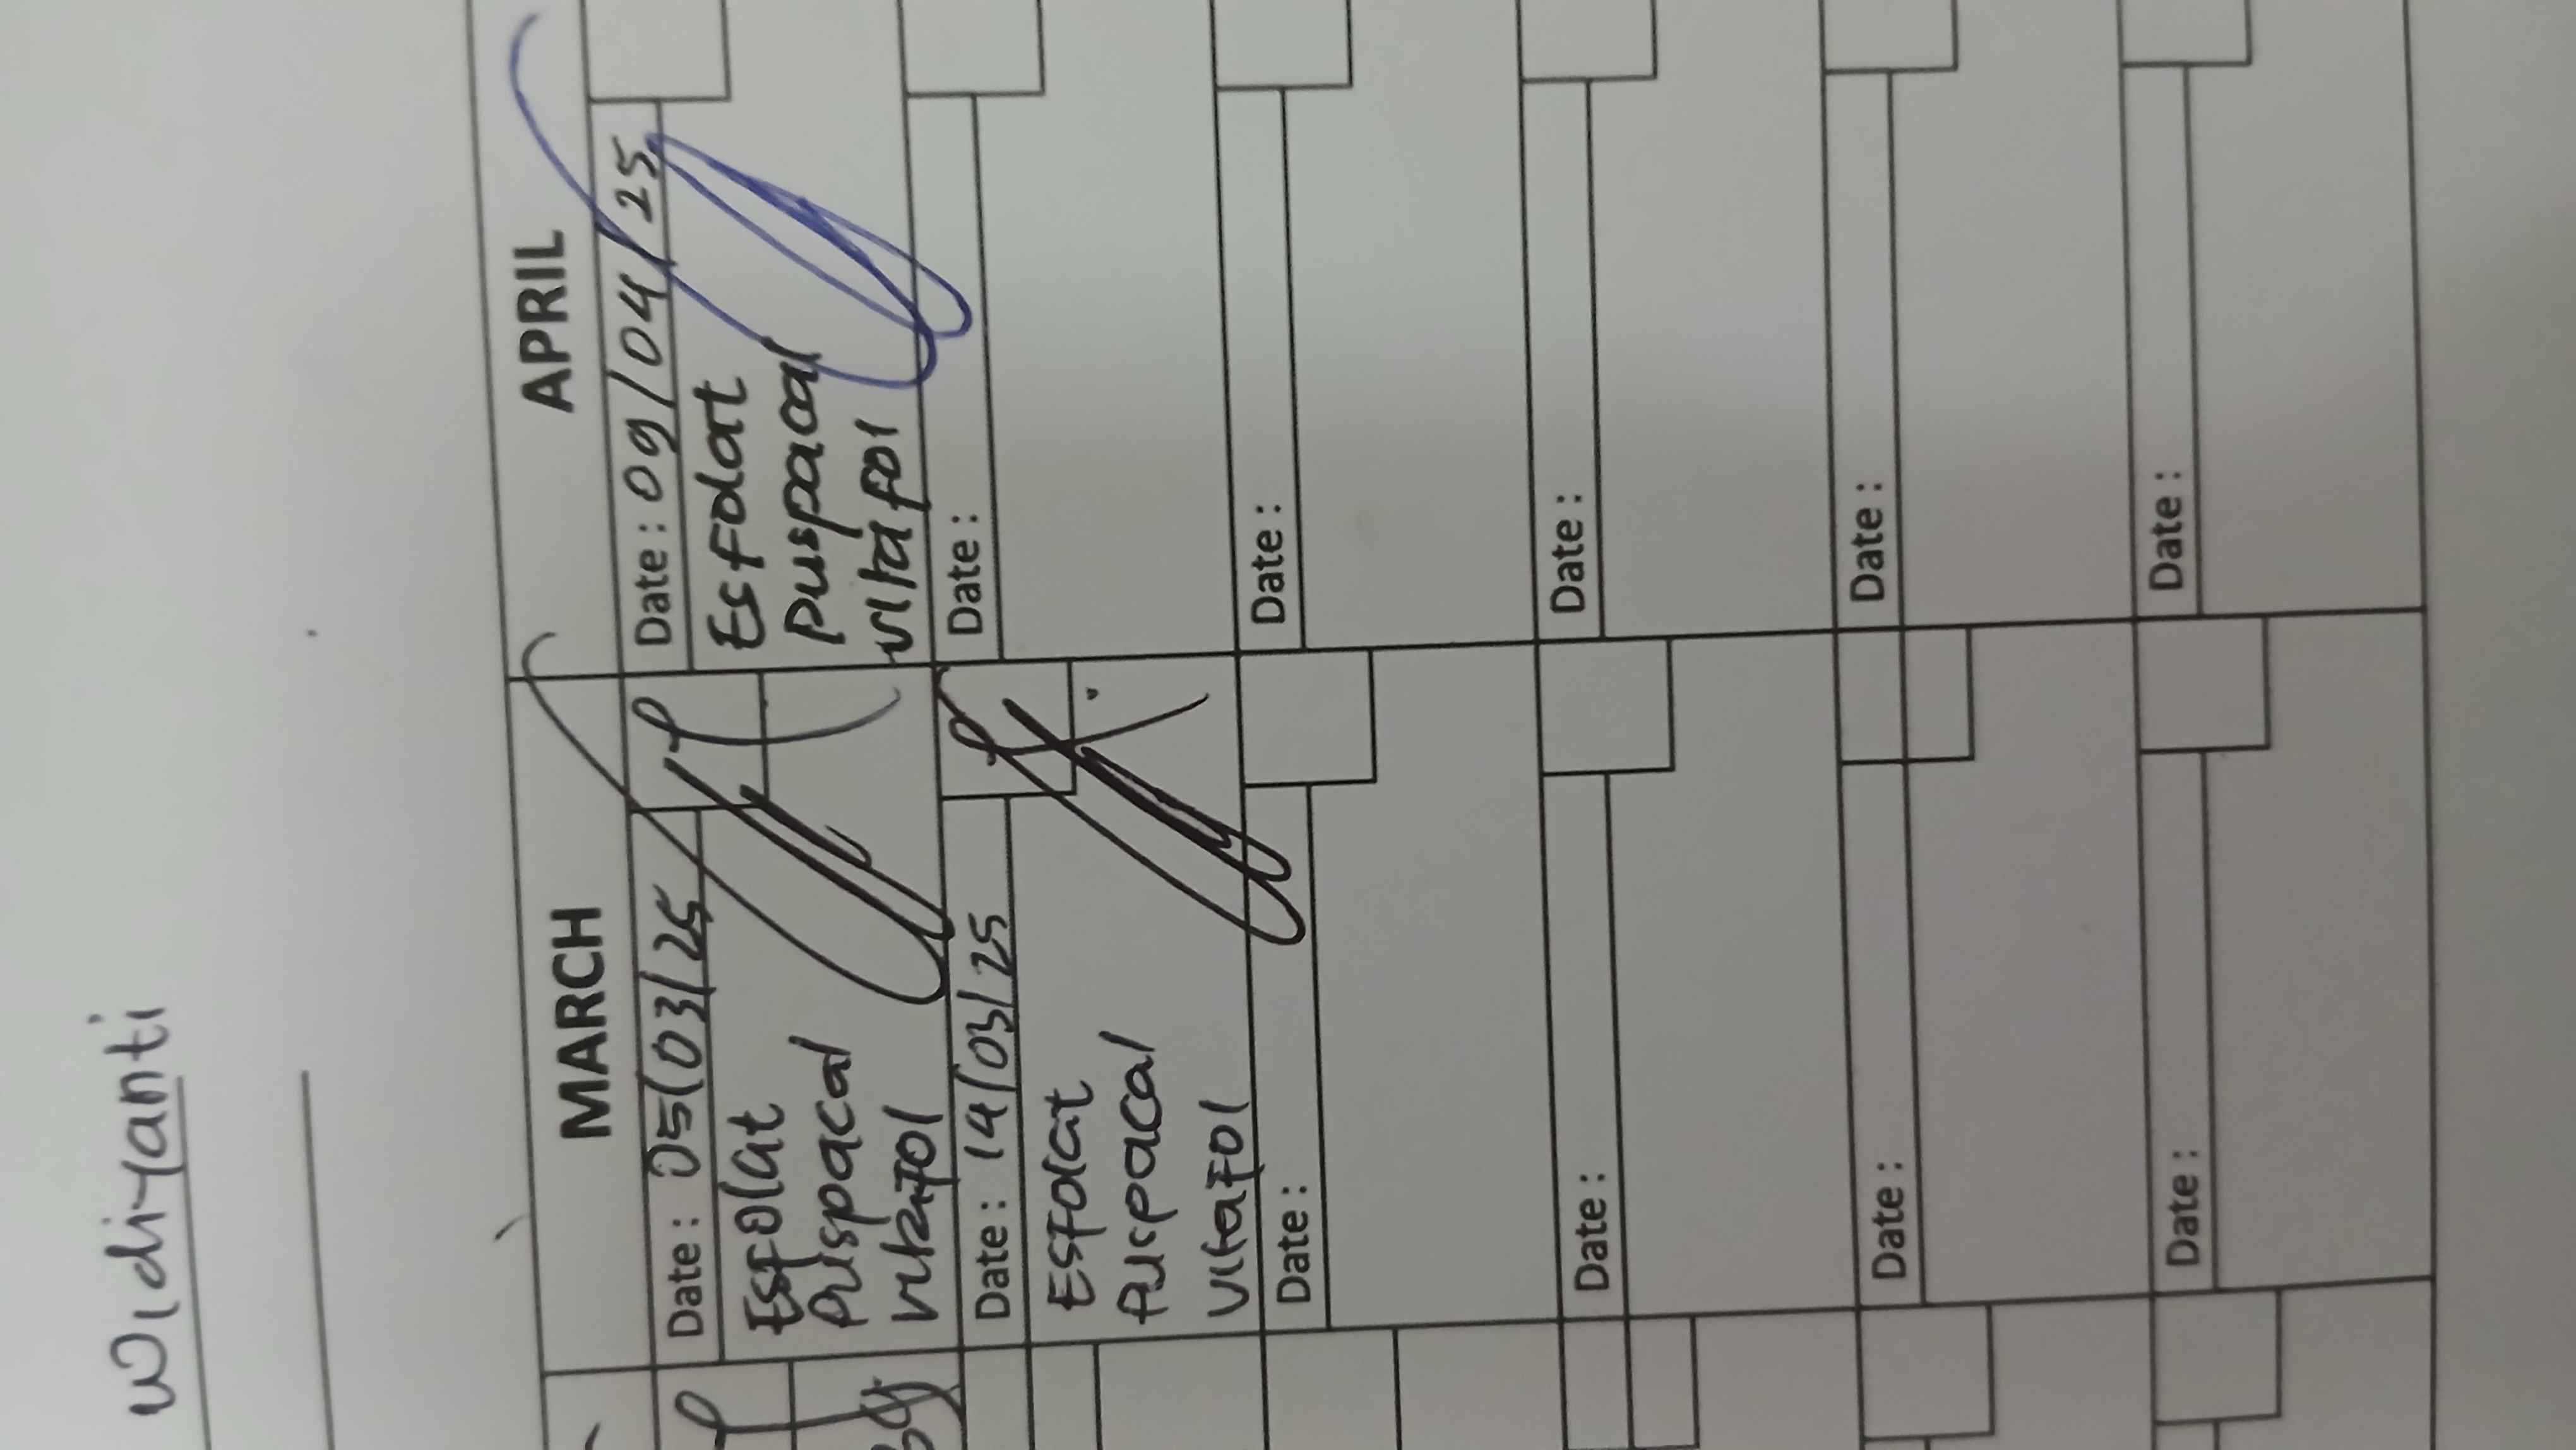 Widiyanti
MARCH
Date : 05/03/25
Esfolat
puspacal
vitafol
Date : 14/03/25
Esfolat
puspacal
vitafol
Date :
Date :
Date :
Date :
APRIL
Date : 09/04/25
Esfolat
puspacal
vitafol
Date :
Date :
Date :
Date :
Date :